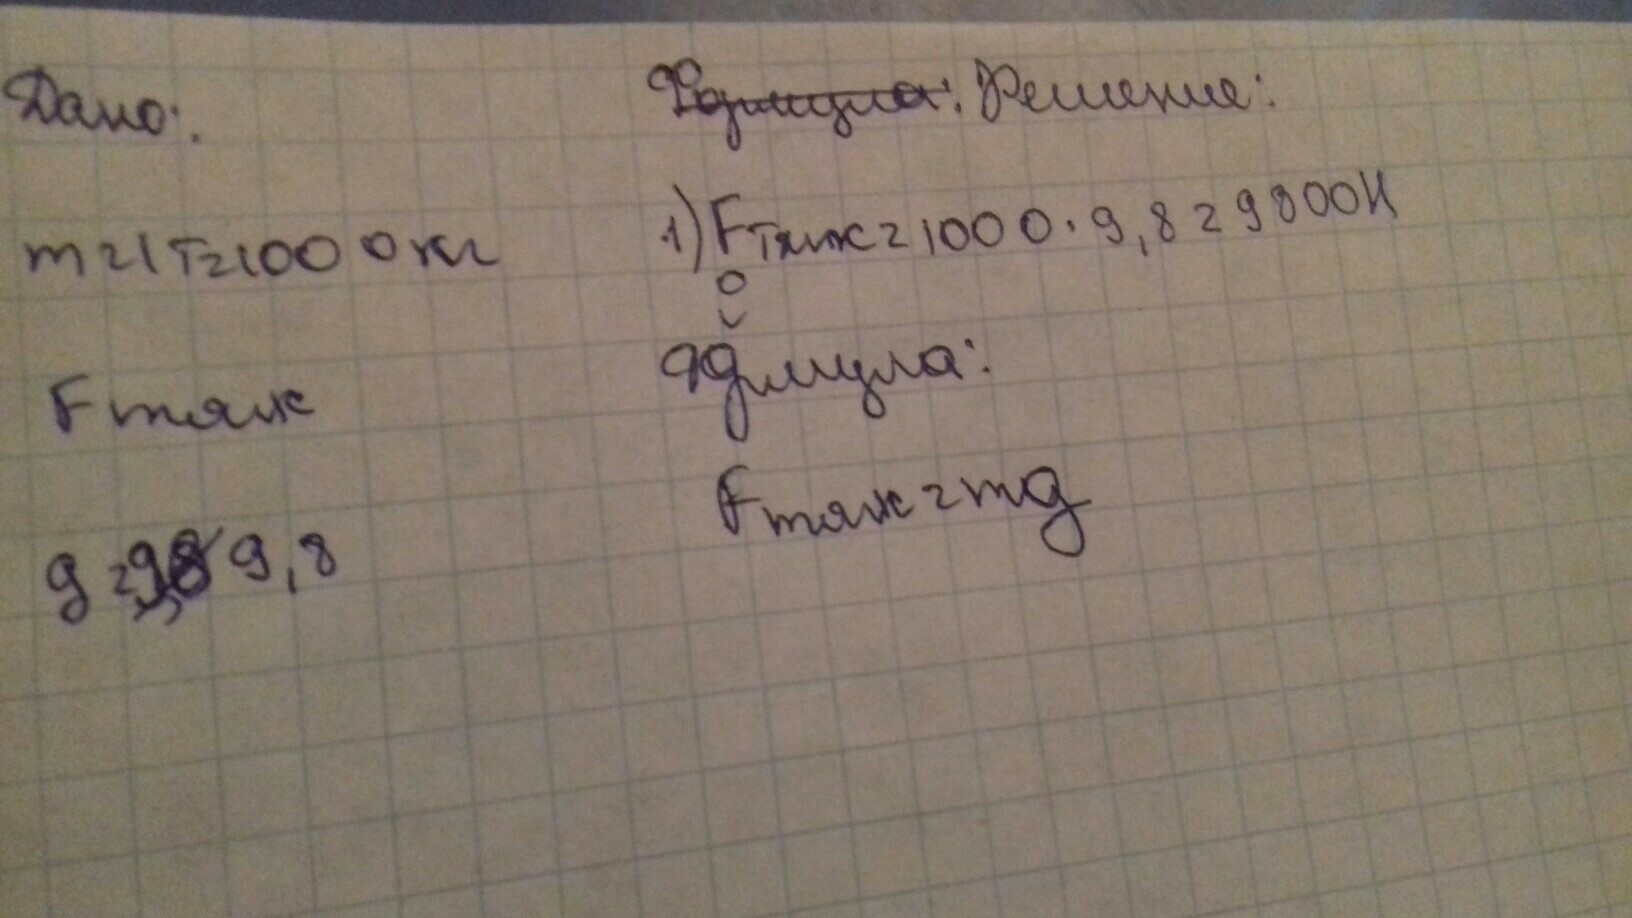 Дано:
m=1т=1000кг
Fтяж
g=9,8
Решение:
1) Fтяж=1000·9,8=9800Н
Формула:
Fтяж=mg